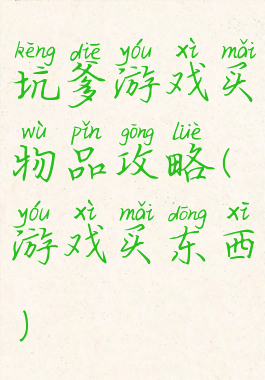 kēng diē yóu xì mǎi
坑爹游戏买
wù pǐn gōng lüè
物品攻略(
yóu xì mǎi dōng xī
游戏买东西
)